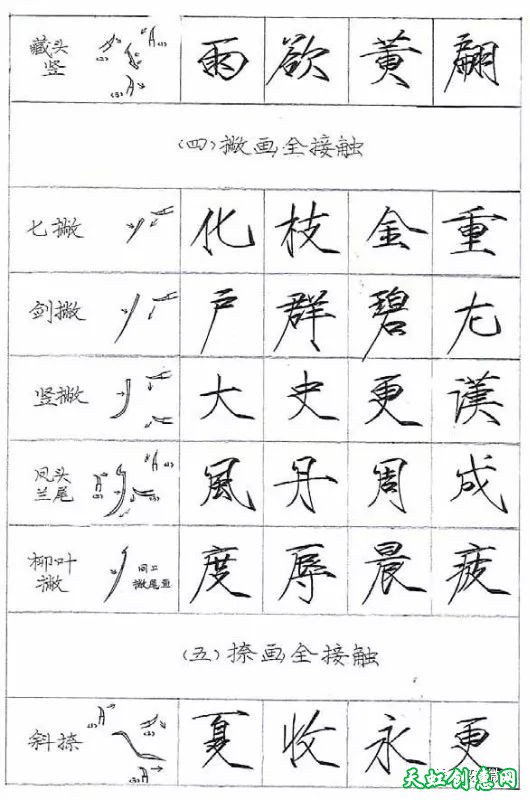 藏头
竖
雨 欲 黄 翩
(四)撇画全接触
七撇 化 枝 金 重
剑撇 户 群 碧
竖撇 大 史 更 漢
凤头
兰尾
風 丹 周 成
柳叶
撇
同上
度 辱 晨 疲
(五)捺画全接触
斜捺 夏 收 永 更
天虹创意网